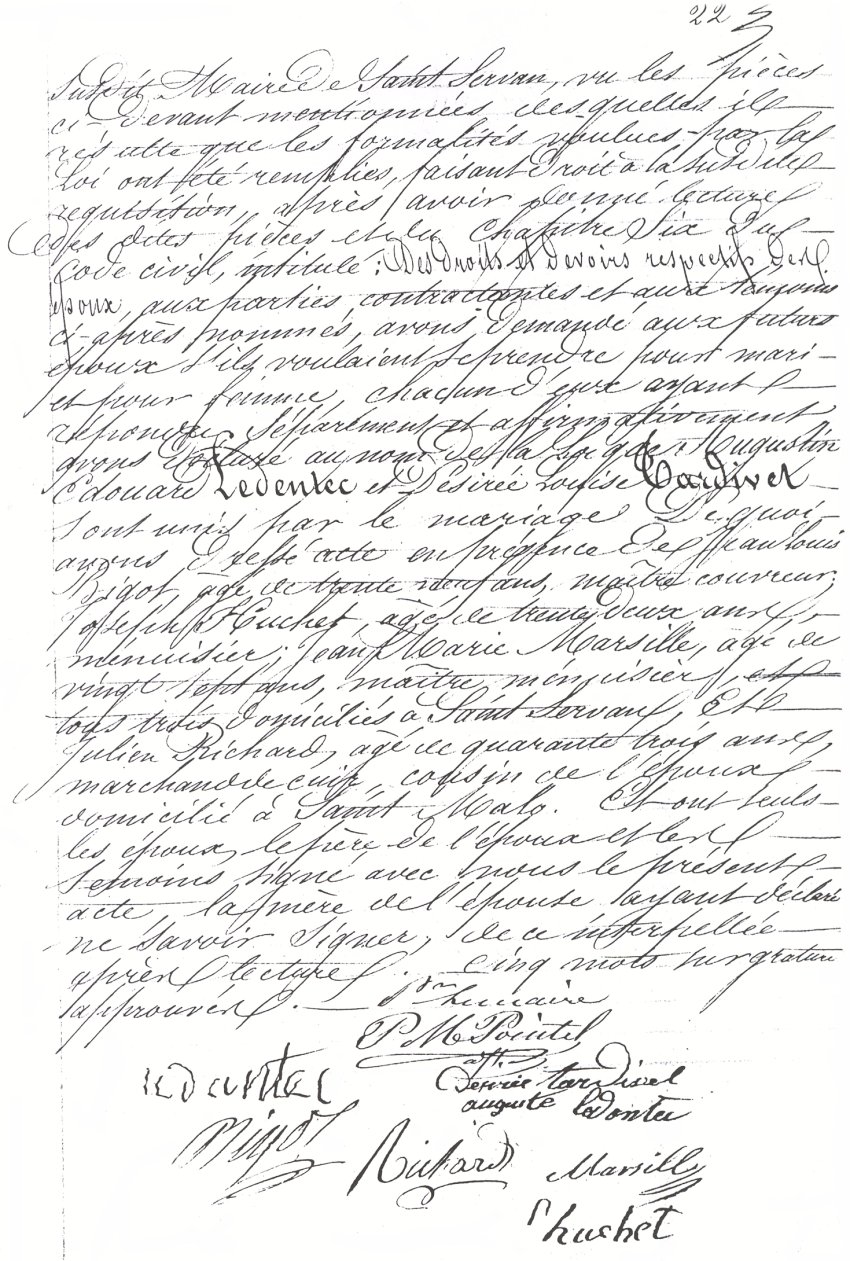 22
Susdit Maire de Saint Servan, vu les pièces
ci-devant mentionnées desquelles il
résulte que les formalités voulues par la
Loi ont été remplies, faisant droit à la susdite
requisition, après avoir donné lecture
des dites pièces et du Chapitre Six du
Code civil, intitulé : Des droits et devoirs respectifs des
époux, aux parties contractantes et aux témoins
ci-après nommés, avons demandé aux futurs
époux s'ils voulaient se prendre pour mari
et pour femme, chacun d'eux ayant
répondu séparément et affirmativement
avons déclaré au nom de la Loi que Augustin
Edouard Ledentec et Désirée Louise Tardivel
sont unis par le mariage De quoi
avons dressé acte en présence de Jean Louis
Bigot, âgé de trente neuf ans, maître couvreur;
Joseph Huchet, âgé de trente deux ans,
menuisier; Jean Marie Marsille, âgé de
vingt sept ans, maître menuisier, et
tous trois domiciliés à Saint Servan, Et
Julien Richard, âgé de quarante trois ans,
marchand de cuir, cousin de l'époux
domicilié à Saint Malo. Et ont seuls
les époux, le père de l'époux et les
témoins signé avec nous le présent
acte, la mère de l'épouse ayant déclaré
ne savoir signer, de ce interpellée
après lecture. cinq mots sur grature
approuvés.
P M Pointel
Ledentec
Desirée tardivel
auguste ledentec
Bigot
Richard
Marsille
huchet